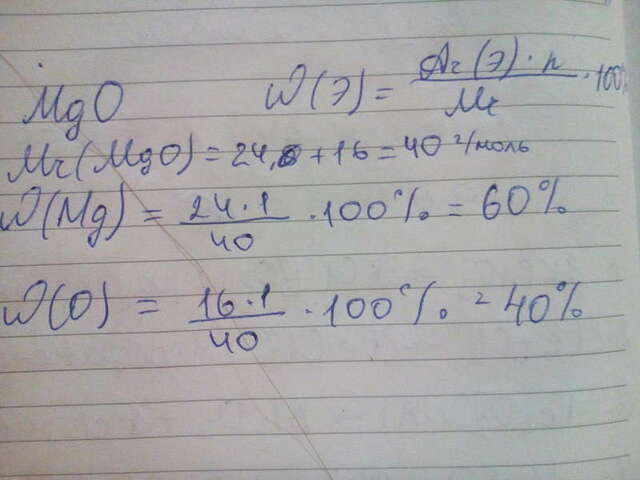 MgO W(Э) = Ar(Э)·n / Mr · 100%
Mr(MgO) = 24, + 16 = 40 г/моль
W(Mg) = 24·1 / 40 · 100% = 60%
W(O) = 16·1 / 40 · 100% = 40%